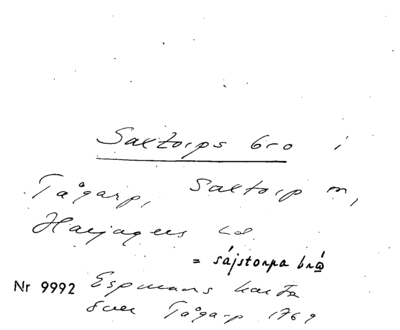 Saxtorps bro i
Tågarp, Saxtorp m,
Harjagers hd
= sájstorpa brω
Nr 9992 Espmans karta
över Tågarp 1769